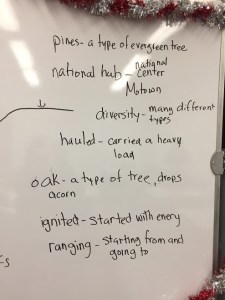 pines - a type of evergreen tree
national hub - national center
Motown
diversity - many different types
hauled - carried a heavy
load
oak - a type of tree, drops
acorn
ignited - started with enery
ranging - starting from and
going to